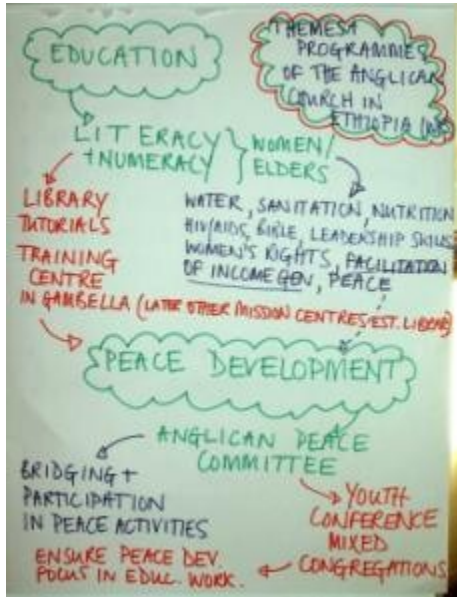 EDUCATION
THEMES+
PROGRAMMES
OF THE ANGLICAN
CHURCH IN
ETHIOPIA
LITERACY
+NUMERACY
WOMEN/
ELDERS
LIBRARY
TUTORIALS
TRAINING
CENTRE
IN GAMBELLA (LATER OTHER MISSION CENTRES/EST. LIBRARY)
WATER, SANITATION, NUTRITION
HIV/AIDS, BIBLE, LEADERSHIP SKILLS,
WOMEN'S RIGHTS, FACILITATION
OF INCOME GEN, PEACE
PEACE DEVELOPMENT
ANGLICAN PEACE
COMMITTEE
BRIDGING +
PARTICIPATION
IN PEACE ACTIVITIES
YOUTH
CONFERENCE
MIXED
CONGREGATIONS
ENSURE PEACE DEV.
FOCUS IN EDUC. WORK.